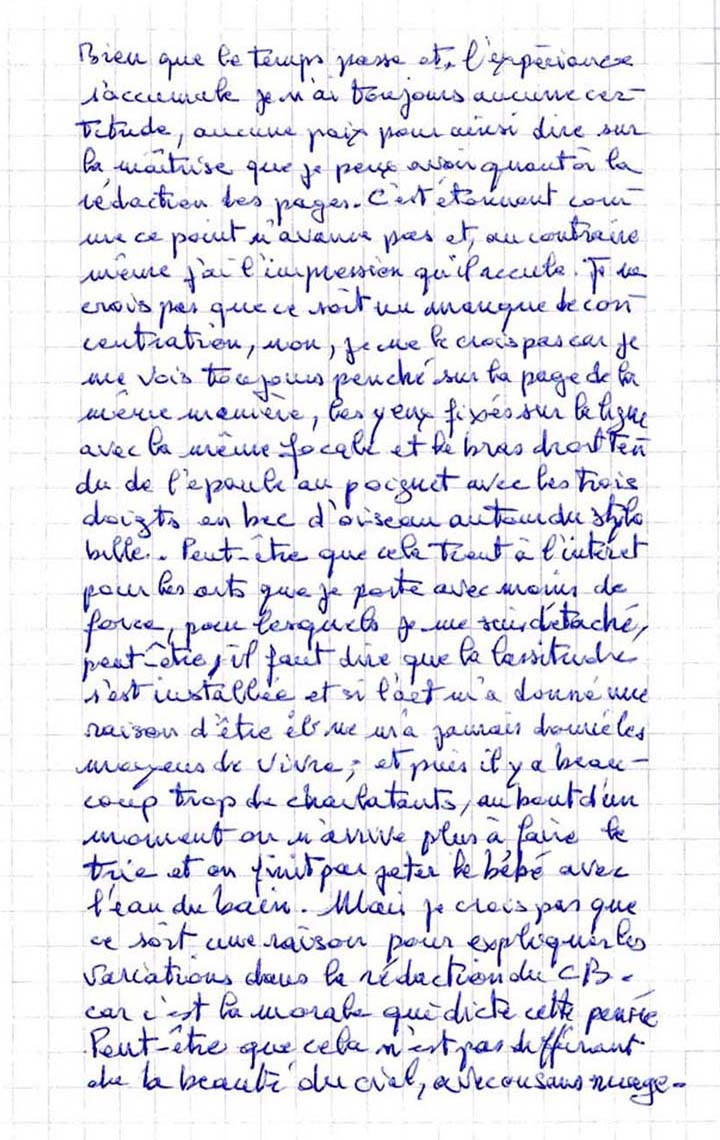 Bien que le temps passe et, l'expérience
s'accumule je n'ai toujours aucune cer-
titude, aucune paix pour ainsi dire sur
la maîtrise que je peux avoir quant à la
rédaction des pages. C'est étonnant com-
me ce point n'avance pas et, au contraire
même j'ai l'impression qu'il accule. Je ne
crois pas que ce soit un manque de con-
centration, non, je ne le crois pas car je
me vois toujours penché sur la page de la
même manière, les yeux fixés sur la ligne
avec la même focale et le bras droit ten
du de l'epaule au poignet avec les trois
doigts en bec d'oiseau autour du stylo
bille. Peut-être que cela tient à l'intérêt
pour les arts que je porte avec moins de
force, pour lesquels je me suis détaché,
peut-être, il faut dire que la lassitude
s'est installée et si l'art m'a donné une
raison d'être il ne m'a jamais donné les
moyens de vivre; et puis il y a beau-
coup trop de charlatants, au bout d'un
moment on n'arrive plus à faire le
trie et on finit par jeter le bébé avec
l'eau du bain. Mais je crois pas que
ce soit une raison pour expliquer les
variations dans la rédaction du CB.
car c'est la morale qui dicte cette pensée
Peut-être que cela n'est pas différent
de la beauté du ciel, avec ou sans nuage-